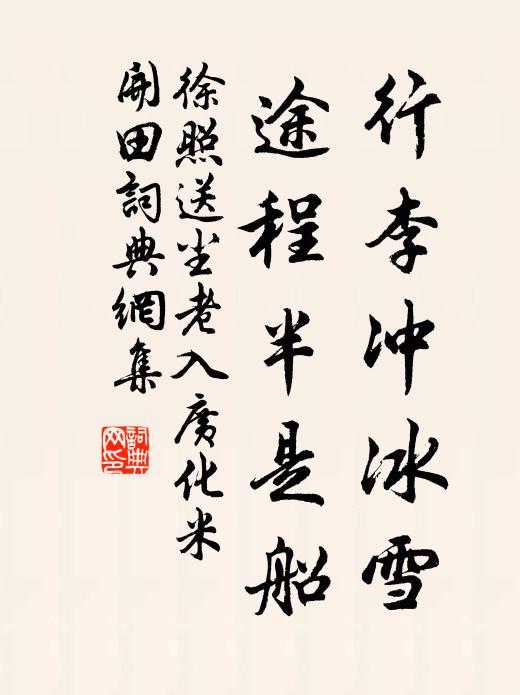 行李冲冰雪
途程半是船
徐照送尘老入广化米
開田詞典網集
詞典网印